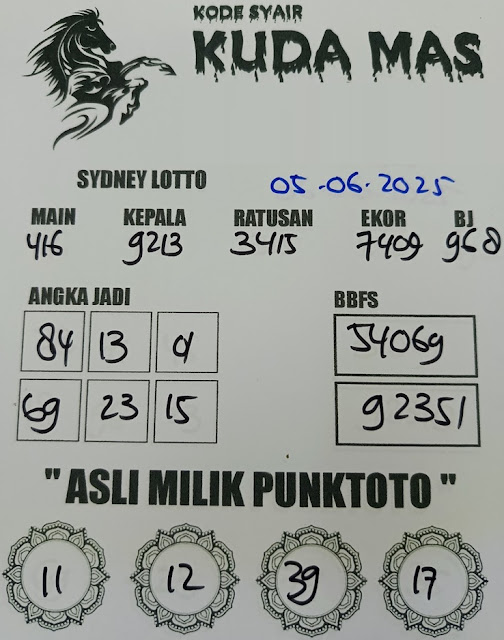 KODE SYAIR
KUDA MAS
SYDNEY LOTTO 05-06-2025
MAIN KEPALA RATUSAN EKOR BJ
416 9213 3415 7409 968
ANGKA JADI BBFS
84 13 54069
69 23 15 92351
" ASLI MILIK PUNKTOTO "
11 12 39 17